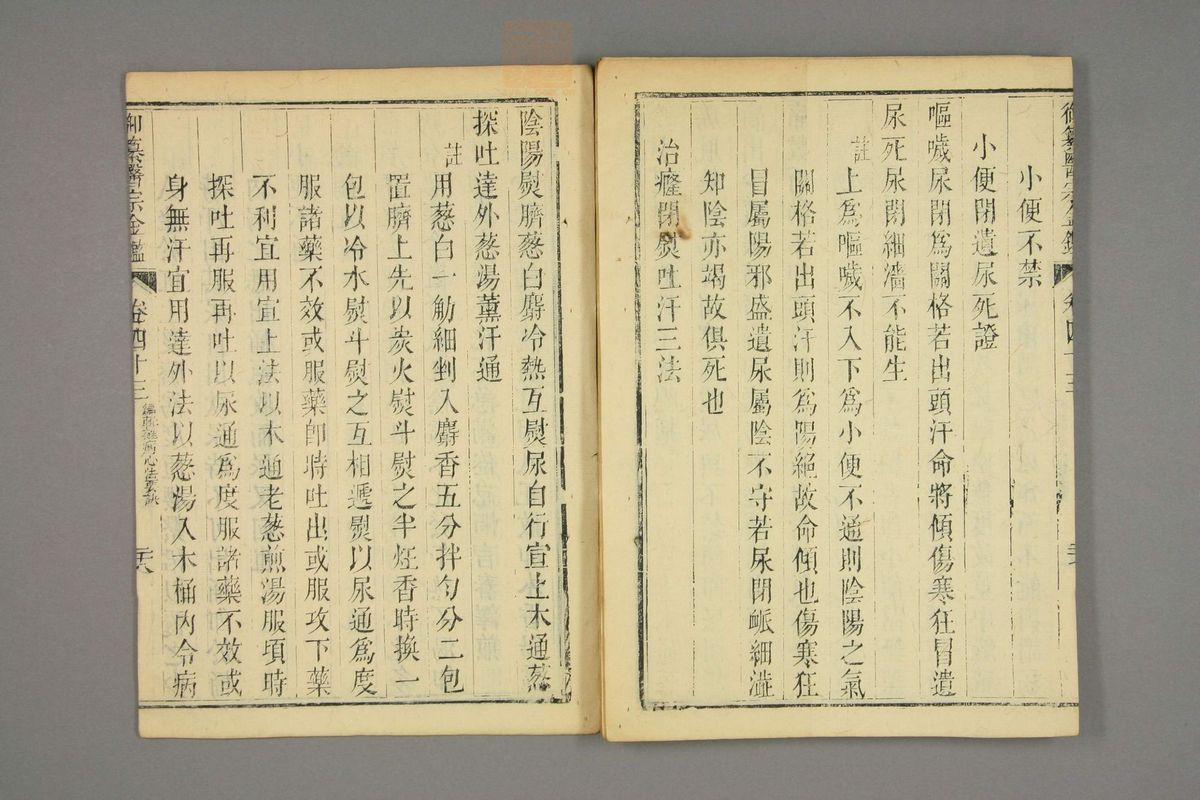 御纂醫宗金鑑 卷四十三
小便不禁
小便閉遺尿死證
嘔噦尿閉爲關格若出頭汗命將傾傷寒狂冒遺
尿死尿閉細濇不能生
註 上爲嘔噦不入下爲小便不通則陰陽之氣
關格若出頭汗則爲陽絕故命傾也傷寒狂
冒屬陽邪盛遺尿屬陰不守若尿閉脈細澁
知陰亦竭故俱死也
治癃閉熨吐汗三法
陰陽熨臍葱白麝冷熱互熨尿自行宣上木通葱
探吐達外葱湯薰汗通
註 用葱白一觔細剉入麝香五分拌勻分二包
置臍上先以炭火熨斗熨之半炷香時換一
包以冷水熨斗熨之互相遞熨以尿通爲度
服諸藥不效或服藥卽時吐出或服攻下藥
不利宜用宣上法以木通老葱煎湯服頃時
探吐再服再吐以尿通爲度服諸藥不效或
身無汗宜用達外法以葱湯入木桶內令病
御纂醫宗金鑑 卷四十三 編輯雜病心法要訣 三六